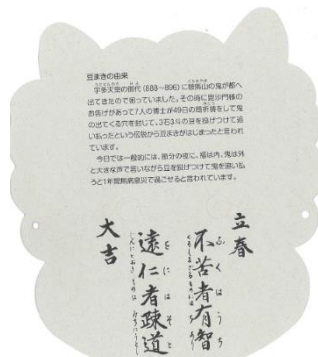 豆まきの由来
宇多天皇の御代(888〜896)に鞍馬山の鬼が都へ
出てきたので困っていました。その時に毘沙門様の
お告げがあって7人の博士が49日の間祈祷をして鬼
の出てくる穴を封じて、3石3斗の豆を投げつけて追
い払ったという伝説から豆まきがはじまったと言われ
ています。
今日では一般的には、節分の夜に、福は内、鬼は外
と大きな声で言いながら豆を投げつけて鬼を追い払
うと1年間無病息災で過ごせると言われています。
立春
不苦者有智
ふくはうち
遠仁者疎道
をにはそと
大吉